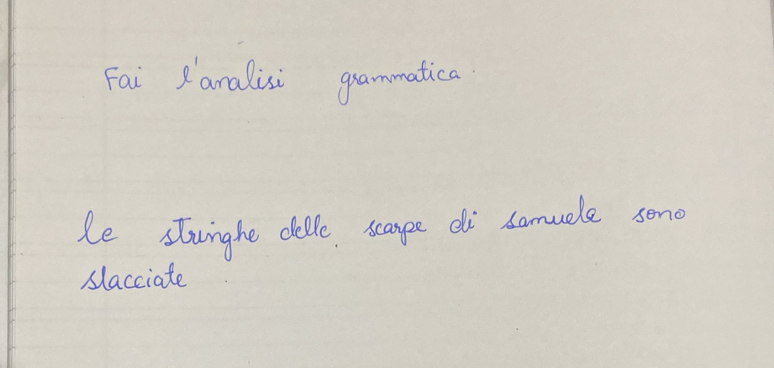 Fai l'analisi grammatica.
le stringhe delle scarpe di samuele sono
slacciate